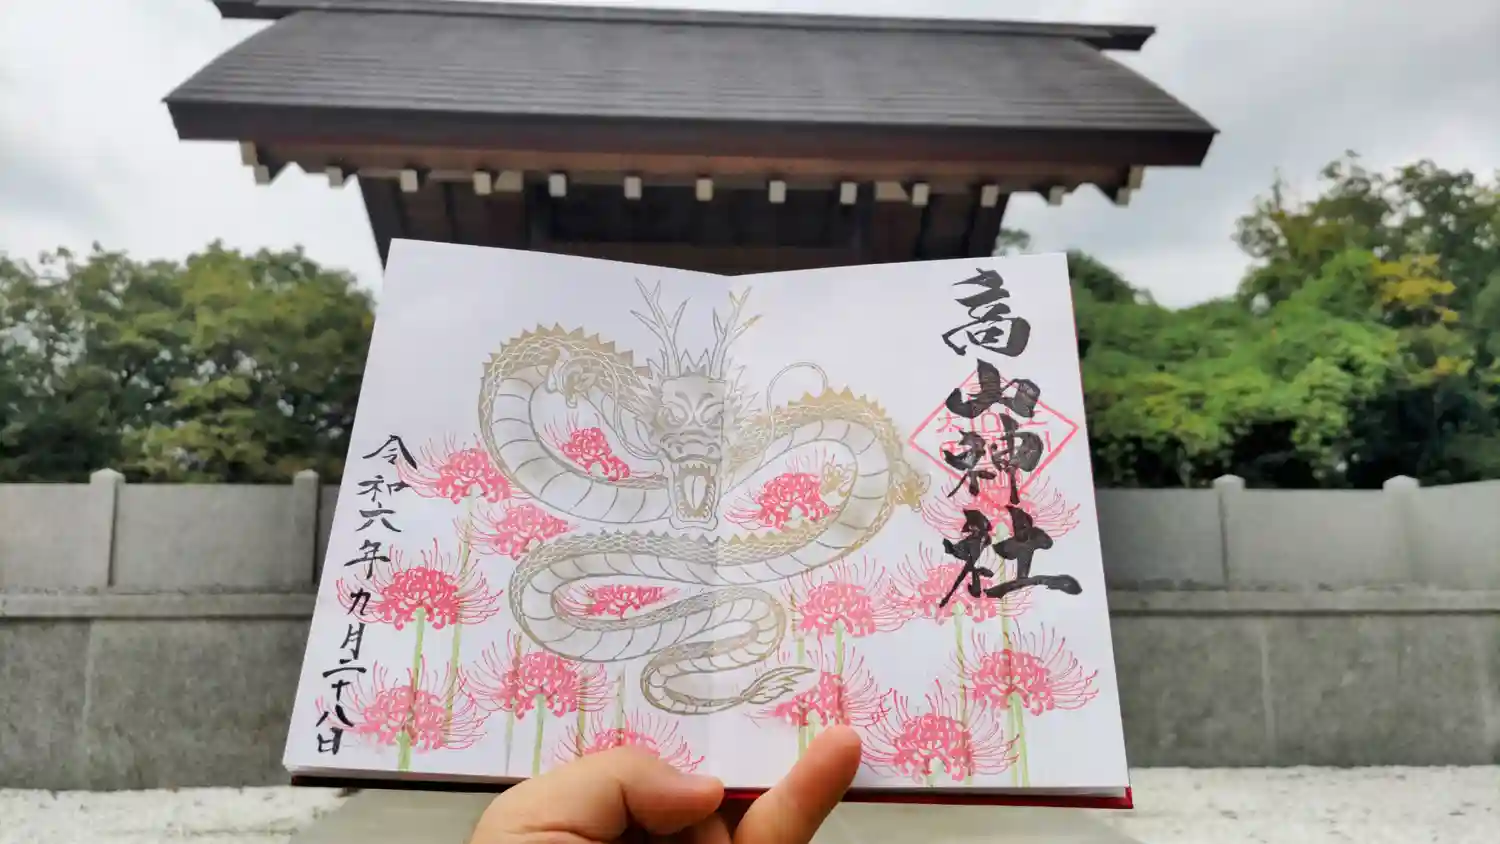 高山神社
令和六年九月二十八日